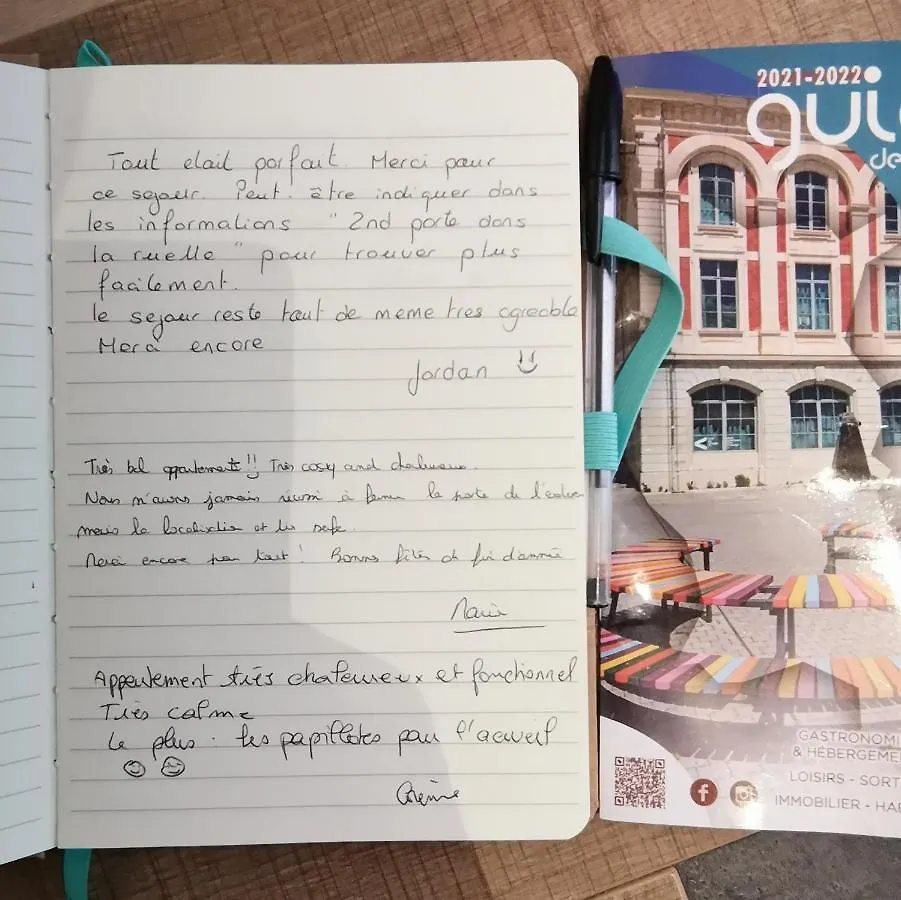 Tout etait parfait. Merci pour
ce sejour. Peut. être indiquer dans
les informations "2nd porte dans
la ruelle" pour trouver plus
facilement.
le sejour reste tout de meme tres agreable
Merci encore
Jordan
Très bel appartement!! Très cosy and chaleureux.
Nous n'avons jamais réussi à fermer la porte de l'entrée
mais la localisation et
Merci encore pour tout! Bonnes fêtes de fin d'année
Marie
Appartement très chaleureux et fonctionnel
Très calme
Le plus : les papillotes pour l'accueil
2021-2022
gui
de
GASTRONOMI
& HÉBERGEME
LOISIRS - SORT
IMMOBILIER - HAB